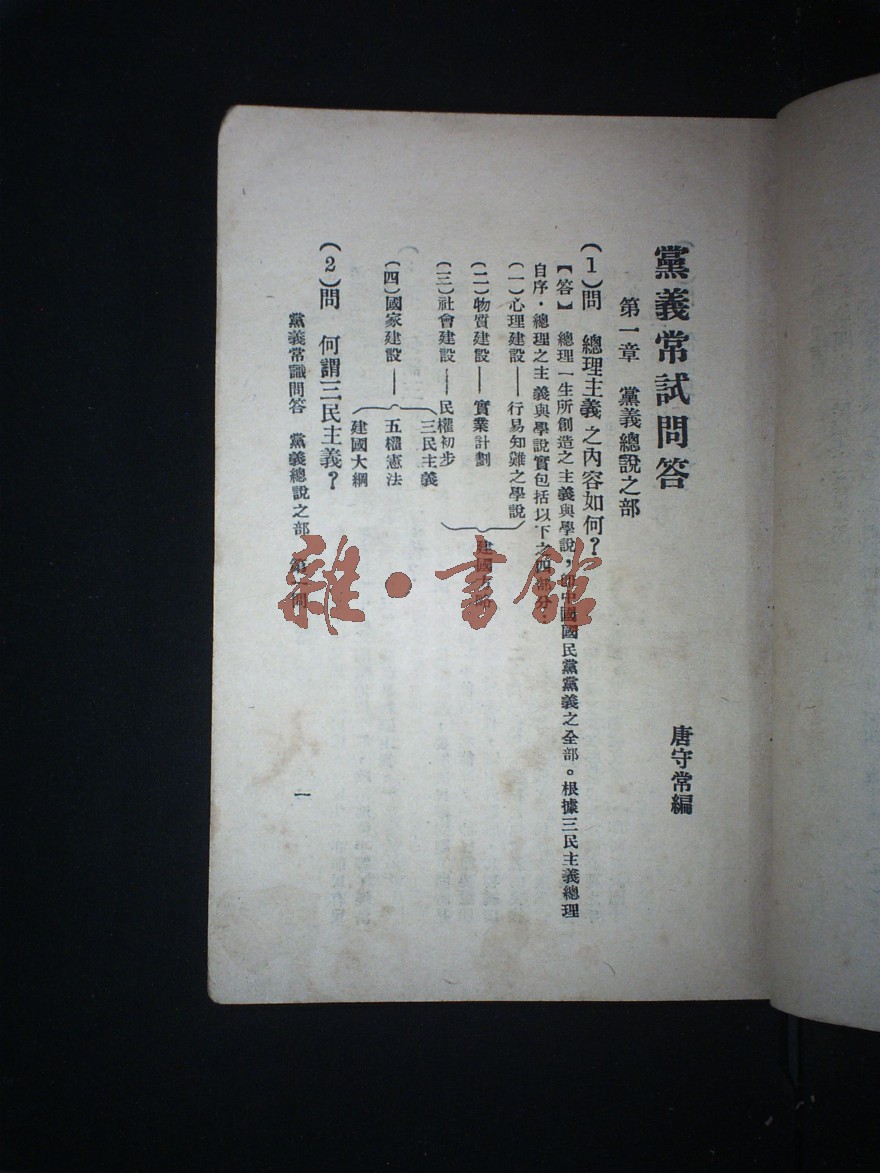 黨義常試問答
唐守常編
第一章　黨義總說之部
(1)問　總理主義之內容如何？
【答】　總理一生所創造之主義與學說，卽中國國民黨黨義之全部。根據三民主義總理
自序．總理之主義與學說實包括以下之四部分：
(一)心理建設——行易知難之學說
(二)物質建設——實業計劃
建國方略
(三)社會建設——民權初步
(四)國家建設——
三民主義
五權憲法
建國大綱
(2)問　何謂三民主義？
黨義常識問答　黨義總說之部　第一問
一
雜·書館